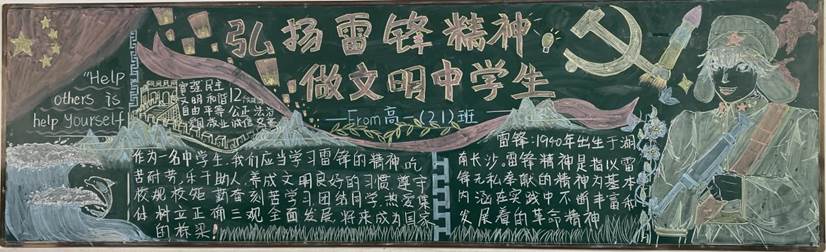 弘扬雷锋精神
做文明中学生
—From高一(21)班
"Help
others is
help yourself
富强 民主
文明 和谐
自由 平等 公正 法治
爱国 敬业 诚信 友善
作为一名中学生,我们应当学习雷锋的精神,吃
苦耐劳,乐于助人,养成文明良好的习惯,遵守
校规校矩,勤奋刻苦学习,团结同学,热爱集
体,树立正确三观,全面发展,将来成为国家
的栋梁!
雷锋:1940年出生于湖
南长沙,雷锋精神是指以雷
锋无私奉献的精神为基本
内涵,在实践中不断丰富和
发展着的革命精神